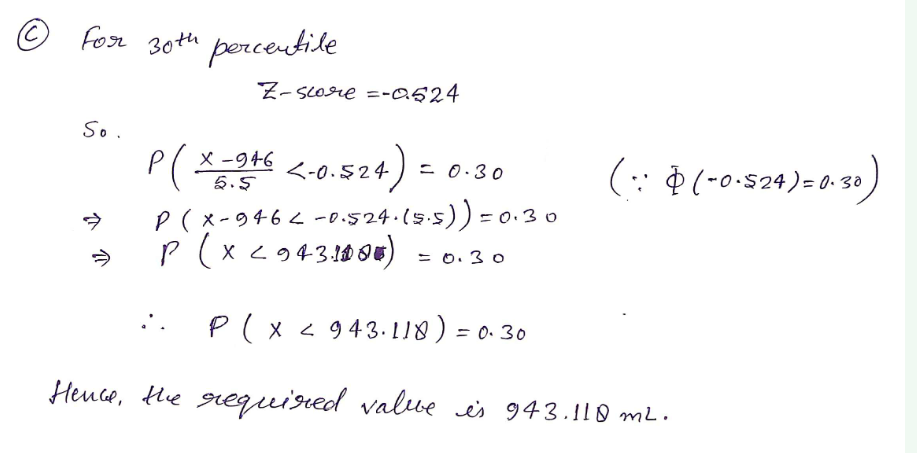 (c) For 30th percentile
Z-score = -0.524
So.
P( X-946 / 5.5 < -0.524) = 0.30 (∵ Φ(-0.524) = 0.30)
⇒ P(X-946 < -0.524.(5.5)) = 0.30
⇒ P(X < 943.) = 0.30
∴ P(X < 943.118) = 0.30
Hence, the required value is 943.118 mL.